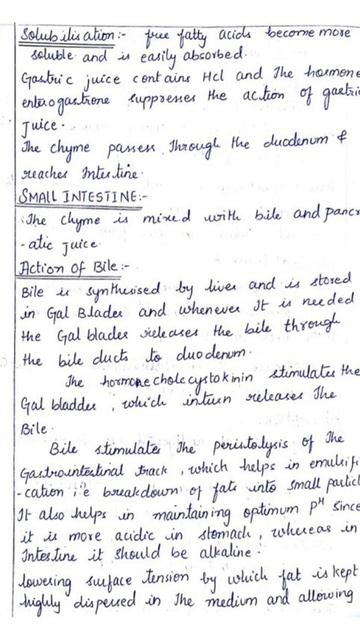 Solubilisation:- free fatty acids become more
soluble and is easily absorbed.
Gastric juice contains Hcl and The hormone
enterogastrone suppresses the action of gastri
Juice.
The chyme passes through the duodenum &
reaches Intestine.
SMALL INTESTINE:-
The chyme is mixed with bile and pancr
-atic Juice
Action Of Bile:-
Bile is synthesised by liver and is stored
in Gal Blader and whenever It is needed
the Gal blader releases the bile through
the bile ducts to duodenum.
The hormone cholecystokinin stimulates the
Gal bladder, which inturn releases The
Bile.
Bile stimulates The peristolysis of The
Gastrointestinal track, which helps in emulsifi
-cation i;e breakdown of fats into small particl
It also helps in maintaining optimum pH since
it is more acidic in stomach, whereas in
Intestine it should be alkaline.
lowering surface tension by which fat is kept
highly dispersed in The medium and allowing